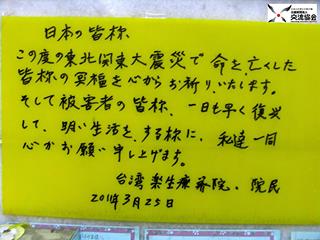 交流協会
日本の皆称
この度の東北関東大震災で命を亡くした
皆称の冥福を心からお祈りいたします。
そして被害者の皆称、一日も早く復興
して、明い生活を、する称に、私達一同
心からお願い申し上げます。
台湾楽生療養院、院民
2011年3月25日